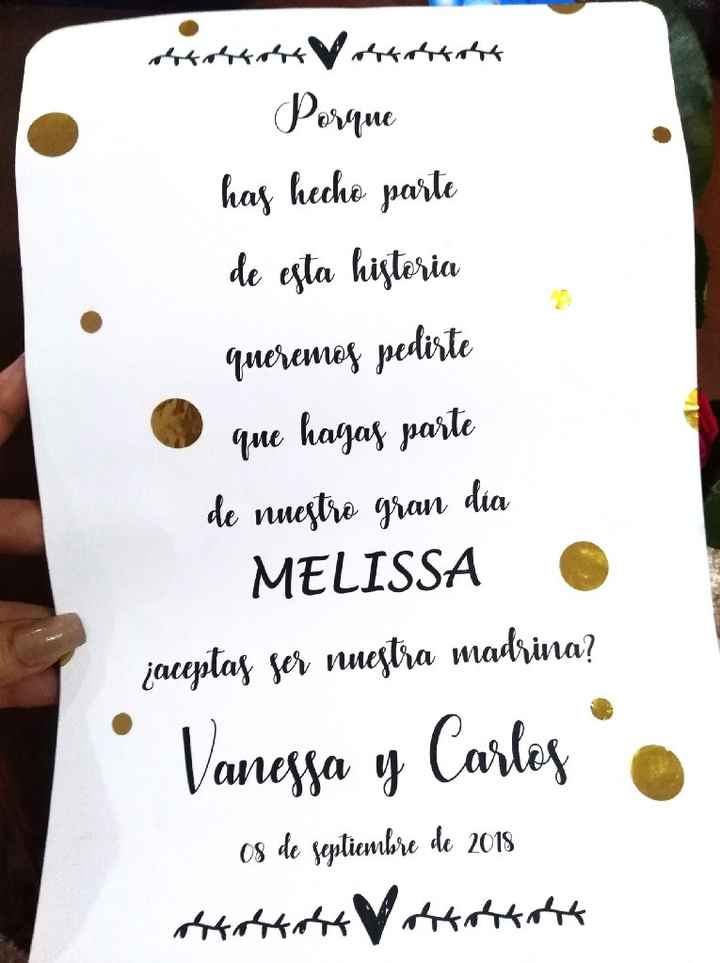 Porque
has hecho parte
de esta historia
queremos pedirte
que hagas parte
de nuestro gran día
MELISSA
¿aceptas ser nuestra madrina?
Vanessa y Carlos
08 de septiembre de 2018